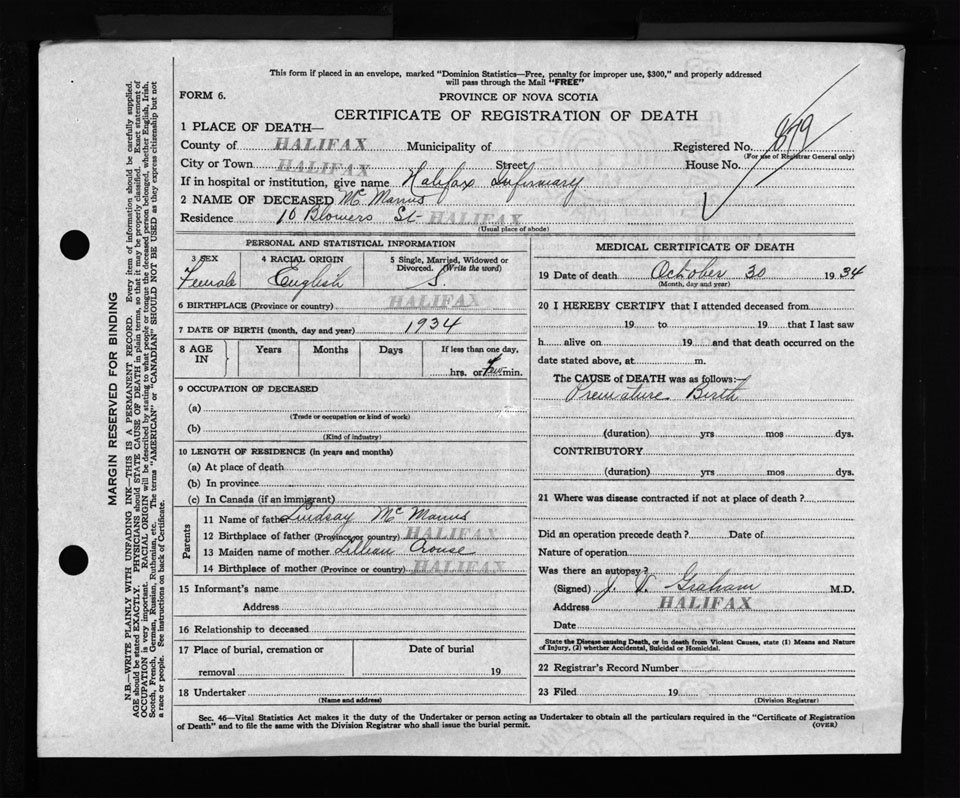 This form if placed in an envelope, marked "Dominion Statistics—Free, penalty for improper use, $300," and properly addressed
will pass through the Mail "FREE"
FORM 6.
PROVINCE OF NOVA SCOTIA
CERTIFICATE OF REGISTRATION OF DEATH
1 PLACE OF DEATH—
County of HALIFAX Municipality of Registered No. 879
(For use of Registrar General only)
City or Town HALIFAX Street House No.
If in hospital or institution, give name Halifax Infirmary
2 NAME OF DECEASED McManus
Residence 10 Blowers St HALIFAX
(Usual place of abode)
PERSONAL AND STATISTICAL INFORMATION
3 SEX 4 RACIAL ORIGIN 5 Single, Married, Widowed or
Divorced. (Write the word)
Female English S.
6 BIRTHPLACE (Province or country) HALIFAX
7 DATE OF BIRTH (month, day and year) 1934
8 AGE IN Years Months Days If less than one day,
hrs. or Few min.
9 OCCUPATION OF DECEASED
(a)
(Trade or occupation or kind of work)
(b)
(Kind of industry)
10 LENGTH OF RESIDENCE (in years and months)
(a) At place of death
(b) In province
(c) In Canada (if an immigrant)
Parents
11 Name of father Lindsay McManus
12 Birthplace of father (Province or country) HALIFAX
13 Maiden name of mother Lillian Crouse
14 Birthplace of mother (Province or country) HALIFAX
15 Informant's name
Address
16 Relationship to deceased
17 Place of burial, cremation or Date of burial
removal 19
18 Undertaker
(Name and address)
MEDICAL CERTIFICATE OF DEATH
19 Date of death October 30 1934
(Month, day and year)
20 I HEREBY CERTIFY that I attended deceased from
19 to 19 that I last saw
h alive on 19 and that death occurred on the
date stated above, at m.
The CAUSE of DEATH was as follows:—
Premature Birth
(duration) yrs mos dys.
CONTRIBUTORY
(duration) yrs mos dys.
21 Where was disease contracted if not at place of death ?
Did an operation precede death ? Date of
Nature of operation
Was there an autopsy ?
(Signed) J. V. Graham M.D.
Address HALIFAX
Date
State the Disease causing Death, or in death from Violent Causes, state (1) Means and Nature
of Injury, (2) whether Accidental, Suicidal or Homicidal.
22 Registrar's Record Number
23 Filed 19
(Division Registrar)
Sec. 46—Vital Statistics Act makes it the duty of the Undertaker or person acting as Undertaker to obtain all the particulars required in the "Certificate of Registration
of Death" and to file the same with the Division Registrar who shall issue the burial permit.
(OVER)
MARGIN RESERVED FOR BINDING
N.B.—WRITE PLAINLY WITH UNFADING INK—THIS IS A PERMANENT RECORD. Every item of information should be carefully supplied.
AGE should be stated EXACTLY. PHYSICIANS should STATE CAUSE OF DEATH in plain terms, so that it may be properly classified. Exact statement of
OCCUPATION is very important. RACIAL ORIGIN will be described by stating to what people or tongue the deceased person belonged, whether English, Irish,
Scotch, French, German, Russian, Ruthenian, etc. The terms "AMERICAN" or "CANADIAN" SHOULD NOT BE USED as they express citizenship but not
a race or people. See instructions on back of Certificate.